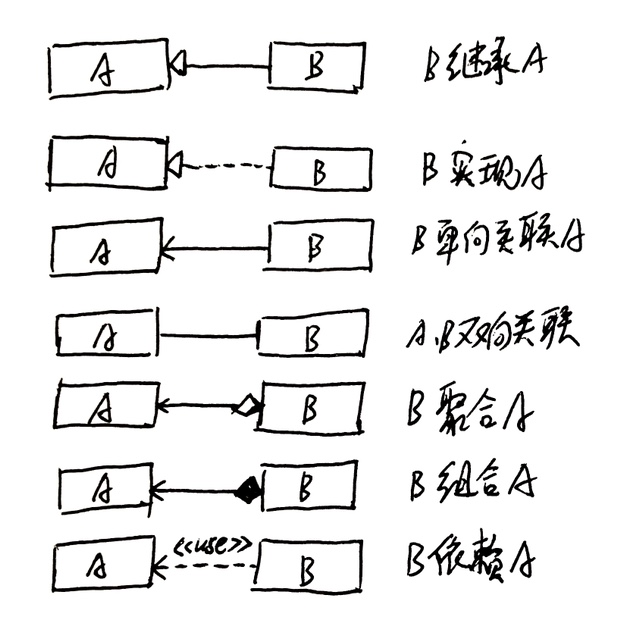 A B B继承A
A B B实现A
A B B单向关联A
A B A、B双向关联
A B B聚合A
A B B组合A
<<use>>
A B B依赖A